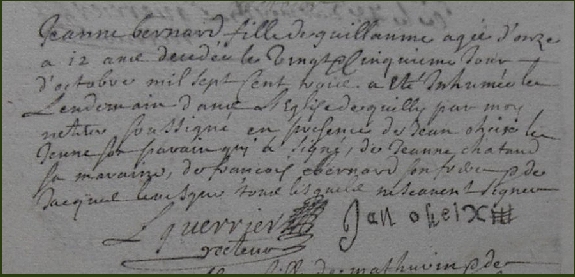 Jeanne bernard fille de guillaume agée d'onze
a 12 ans decedée le Vingt Cinquieme Jour
d'octobre mil sept cent a eté Inhumée le
Lendemain dans l'Eglise de quilly par moy
soussigné en presence de Jean oheix le
Jeune son parain qui a signé, de Jeanne chataud
sa maraine, de francois bernard son frere & de
Jacque tous lesquels ne scavent signer
L guerrier
recteur
Jan oheix
fille de mathurin & de